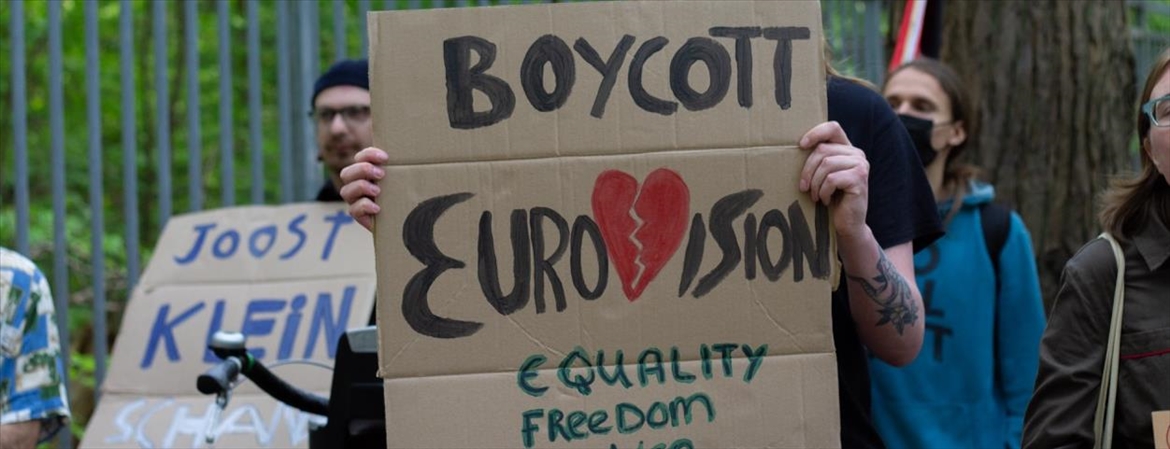 BOYCOTT
EURO💔ISION
EQUALITY
FREEDOM
JOOST
KLEIN